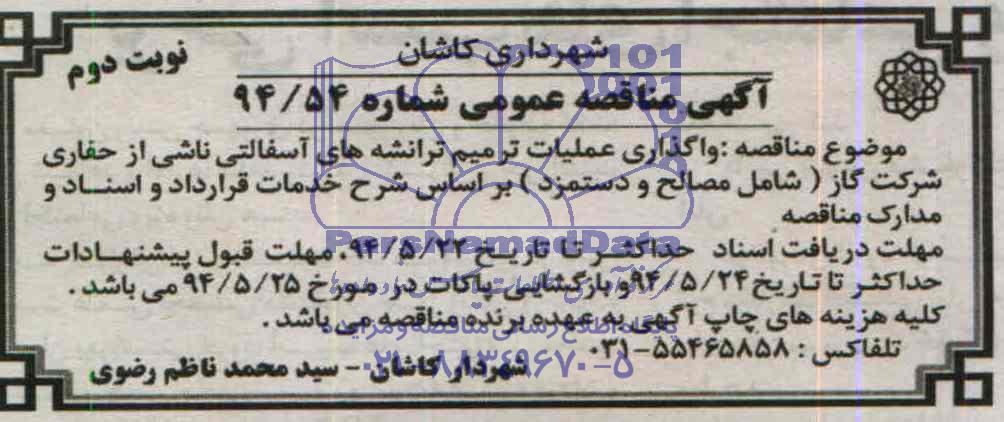 شهرداری کاشان
نوبت دوم
آگهی مناقصه عمومی شماره ۹۴/۵۴
موضوع مناقصه :واگذاری عملیات ترمیم ترانشه های آسفالتی ناشی از حفاری
شرکت گاز ( شامل مصالح و دستمزد ) بر اساس شرح خدمات قرارداد و اسناد و
مدارک مناقصه
مهلت دریافت اسناد حداکثر تا تاریخ ۹۴/۵/۲۲، مهلت قبول پیشنهادات
حداکثر تا تاریخ ۹۴/۵/۲۴ و بازگشایی پاکات در مورخ ۹۴/۵/۲۵ می باشد .
کلیه هزینه های چاپ آگهی به عهده برنده مناقصه می باشد .
تلفاکس : ۵۵۴۶۵۸۵۸-۰۳۱
شهردار کاشان - سید محمد ناظم رضوی
ParsNamadData
پایگاه اطلاع رسانی مناقصه و مزایده
۰۲۱-۸۸۳۴۹۶۷۰-۵